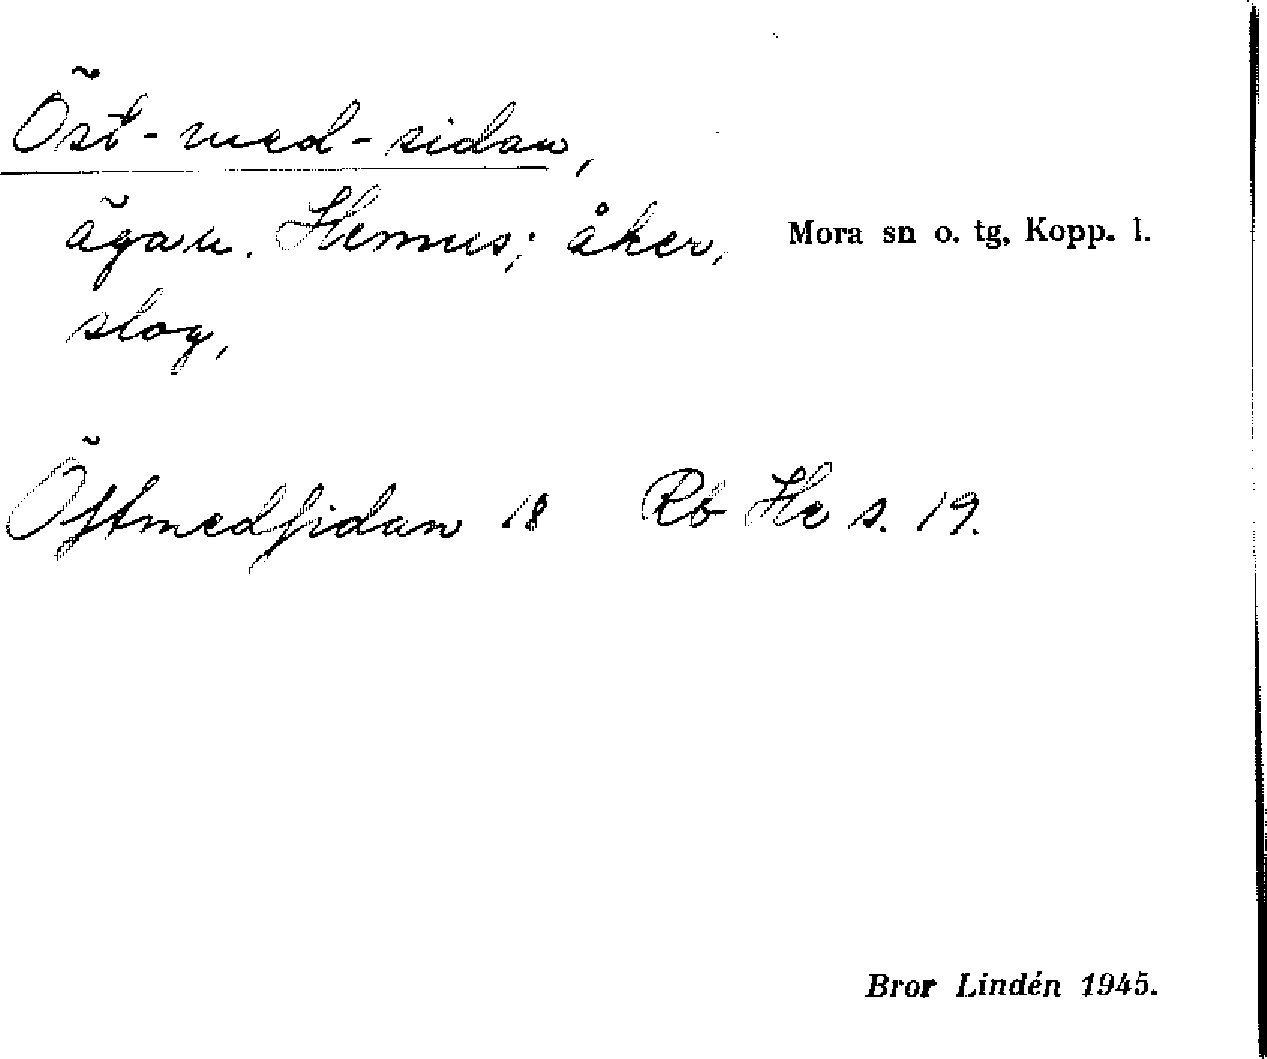 Öst-med-sidan,
ägan. Hemus; åker, Mora sn o. tg, Kopp. l.
slog,
Öſtmedſidan 18 Rb He s. 19.
Bror Lindén 1945.